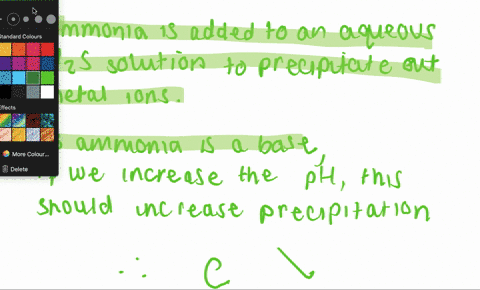 Standard Colours
Effects
More Colour...
Delete
ammonia is added to an aqueous
solution to precipitate out
metal ions.
ammonia is a base,
we increase the pH, this
should increase precipitation
∴ C